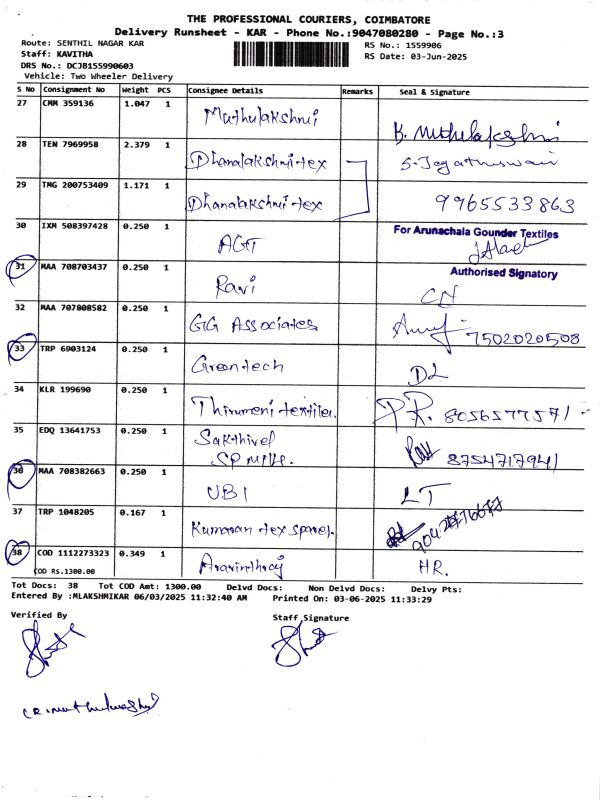 THE PROFESSIONAL COURIERS, COIMBATORE
Delivery Runsheet - KAR - Phone No.:9047080280 - Page No.:3
Route: SENTHIL NAGAR KAR
RS No.: 1559906
Staff: KAVITHA
RS Date: 03-Jun-2025
DRS No.: DCJB155990603
Vehicle: Two Wheeler Delivery
S No Consignment No Weight PCS Consignee Details Remarks Seal & Signature
27 CMM 359136 1.047 1 Muthulakshmi K. Muthulakshmi
28 TEN 7969958 2.379 1 Dhanalakshmi tex S. Jagathiswari
29 TMG 200753409 1.171 1 Dhanalakshmi tex 9965533863
30 IXM 508397428 0.250 1 AGT
For Arunachala Gounder Textiles
Authorised Signatory
31 MAA 708703437 0.250 1 Ravi CN
32 MAA 707808582 0.250 1 GG Associates 7502020508
33 TRP 6903124 0.250 1 Greentech DL
34 KLR 199690 0.250 1 Thirumeni textiles. P.R. 8056577571
35 EDQ 13641753 0.250 1 Sakthivel
SP Mills. 8754717941
36 MAA 708382663 0.250 1 UBI LT
37 TRP 1048205 0.167 1 Kumaran tex spares.
38 COD 1112273323 0.349 1 Aravinthraj HR.
COD RS.1300.00
Tot Docs: 38 Tot COD Amt: 1300.00 Delvd Docs: Non Delvd Docs: Delvy Pts:
Entered By :MLAKSHMIKAR 06/03/2025 11:32:40 AM Printed On: 03-06-2025 11:33:29
Verified By
Staff Signature